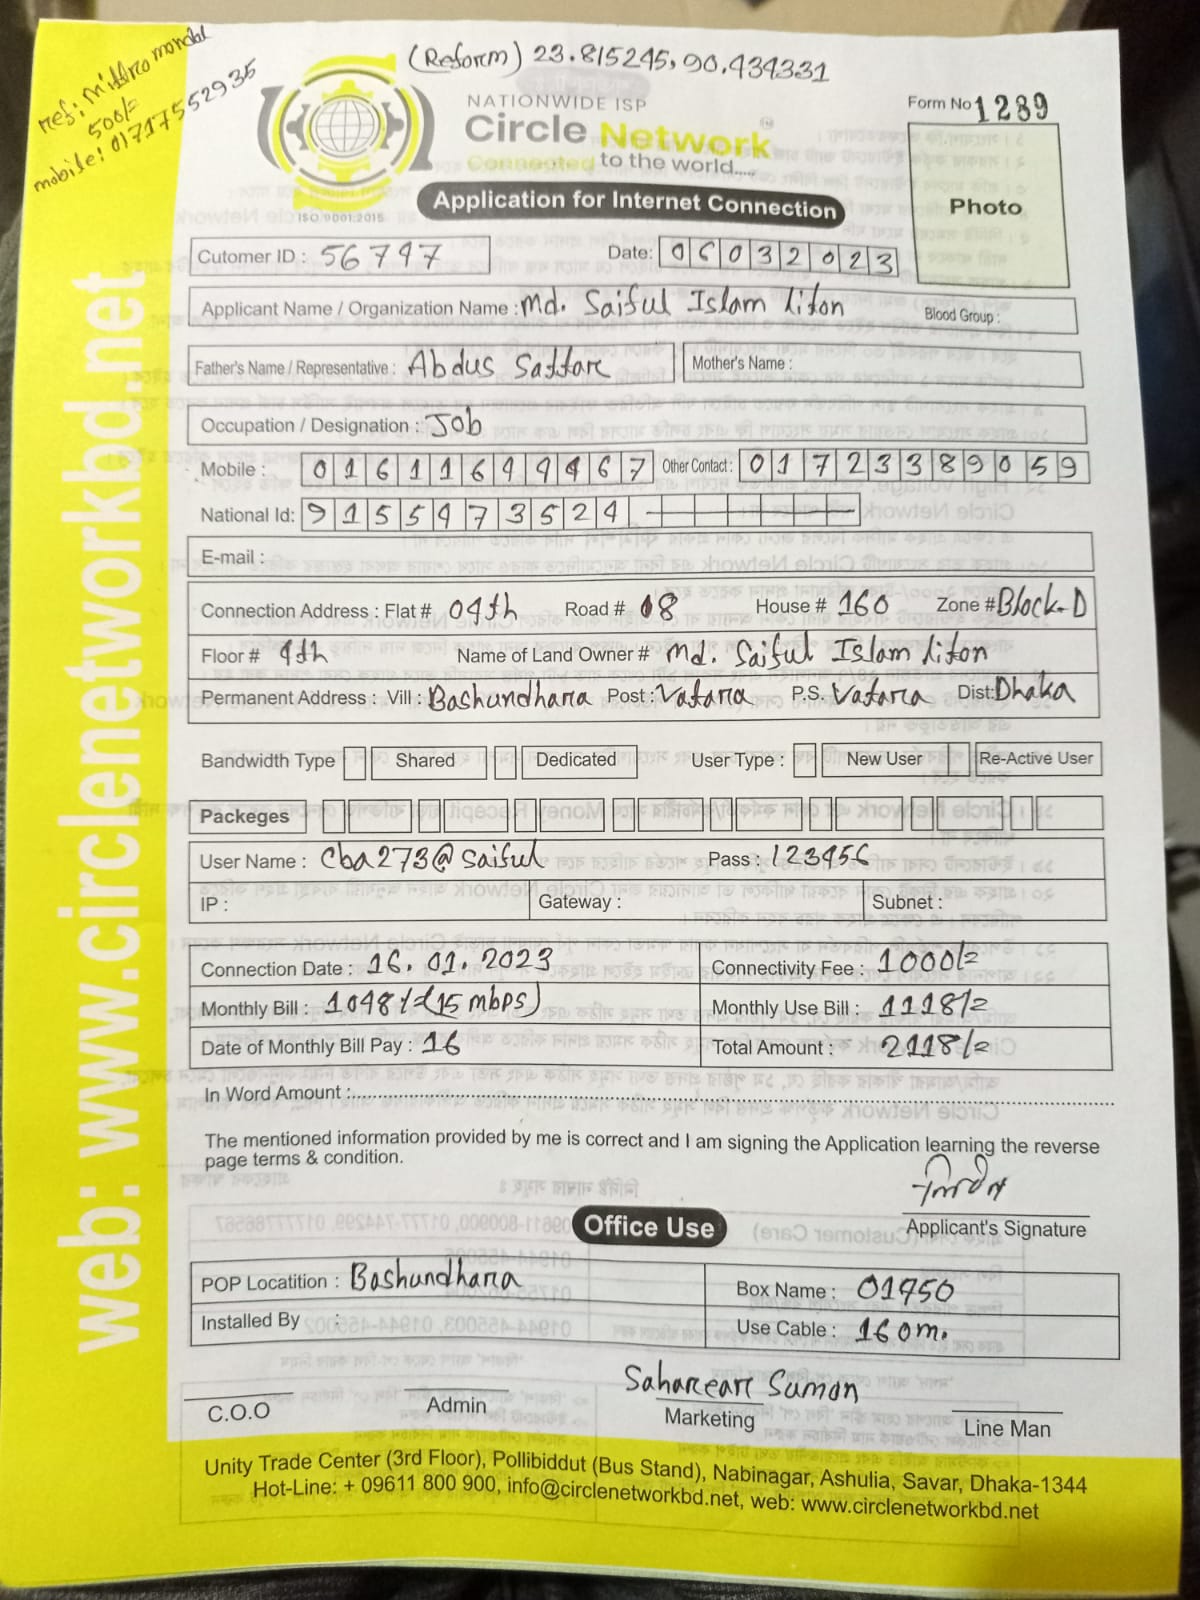 (Reform) 23.815245, 90.434331
ref: Mithro mondal
500/=
mobile: 01717552935
NATIONWIDE ISP
Circle Network
Connected to the world.....
ISO 9001:2015
Form No 1289
Application for Internet Connection
Photo
Cutomer ID : 56747
Date: 06032023
Applicant Name / Organization Name : Md. Saiful Islam Liton
Blood Group :
Father's Name / Representative : Abdus Sattar
Mother's Name :
Occupation / Designation : Job
Mobile : 01611644467 Other Contact : 01723389059
National Id: 9155473524
E-mail :
Connection Address : Flat # 04th Road # 08 House # 160 Zone # Block-D
Floor # 4th Name of Land Owner # Md. Saiful Islam Liton
Permanent Address : Vill : Bashundhara Post : Vatara P.S. Vatara Dist: Dhaka
Bandwidth Type Shared Dedicated User Type : New User Re-Active User
Packeges
User Name : cba273@saiful Pass : 123456
IP : Gateway : Subnet :
Connection Date : 16.01.2023 Connectivity Fee : 1000/=
Monthly Bill : 1048/= (15 mbps) Monthly Use Bill : 1118/=
Date of Monthly Bill Pay : 16 Total Amount : 2118/=
In Word Amount :
The mentioned information provided by me is correct and I am signing the Application learning the reverse
page terms & condition.
লিটন
Applicant's Signature
Office Use
POP Locatition : Bashundhara Box Name : 01450
Installed By : Use Cable : 160m.
Sahareare Sumon
C.O.O Admin Marketing Line Man
Unity Trade Center (3rd Floor), Pollibiddut (Bus Stand), Nabinagar, Ashulia, Savar, Dhaka-1344
Hot-Line: + 09611 800 900, info@circlenetworkbd.net, web: www.circlenetworkbd.net
web: www.circlenetworkbd.net